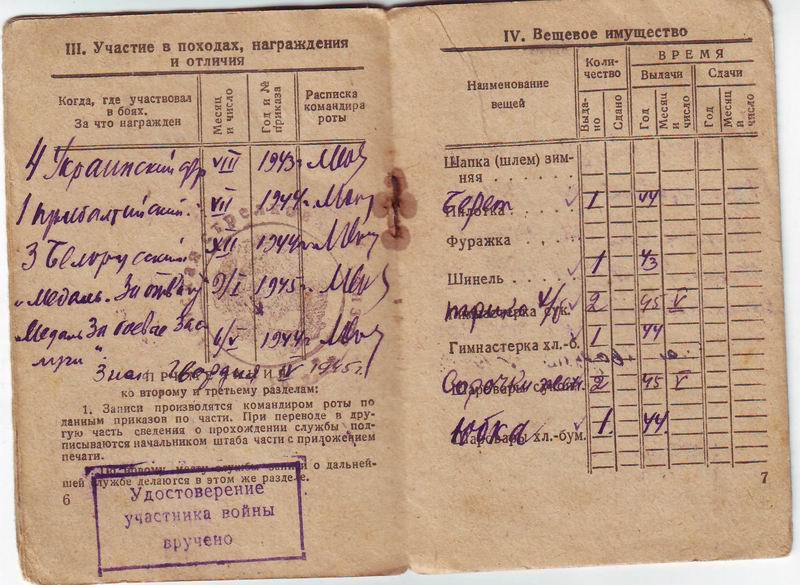 III. Участие в походах, награждения
и отличия
Когда, где участвовал
в боях.
За что награжден
Месяц
и число
Год и №
приказа
Расписка
командира
роты
4 Украинский фр VIII 1943г.
1 Прибалтийский. VII 1944г.
3 Белорусский XII 1944г.
"Медаль. За отвагу 9/I 1945г.
Медаль За боевые Зас
луги" 6/V 1944г.
Знак Гвардия IV 1945г.
ко второму и третьему разделам:
1. Записи производятся командиром роты по
данным приказов по части. При переводе в дру-
гую часть сведения о прохождении службы под-
писываются начальником штаба части с приложением
печати.
2. По новому месту службы записи о дальней-
шей службе делаются в этом же разделе.
6
Удостоверение
участника войны
вручено
IV. Вещевое имущество
Наименование
вещей
Коли-
чество
ВРЕМЯ
Выдачи
Сдачи
Выда-
но
Сдано
Год
Месяц
и
число
Год
Месяц
и
число
Шапка (шлем) зим-
няя
Пилотка Берет 1 44
Фуражка
Шинель 1 43
Гимнастерка сук. х/б 2 45 V
Гимнастерка хл.-б. 1 44
Сорочки 2 45 V
Шаровары хл.-бум. Юбка 1 44
7